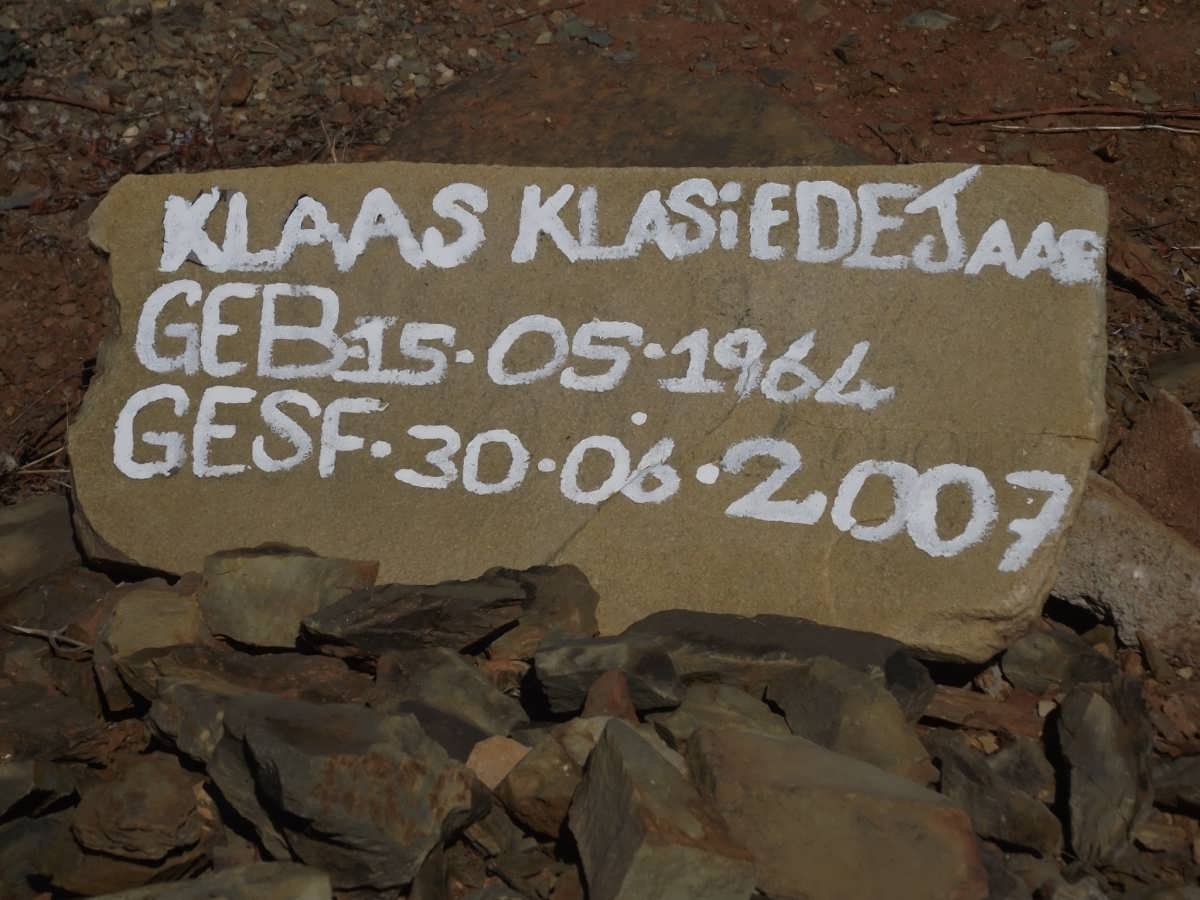 KLAAS KLASiEDEJAAS
GEB.15.05.1964
GESF.30.06.2007